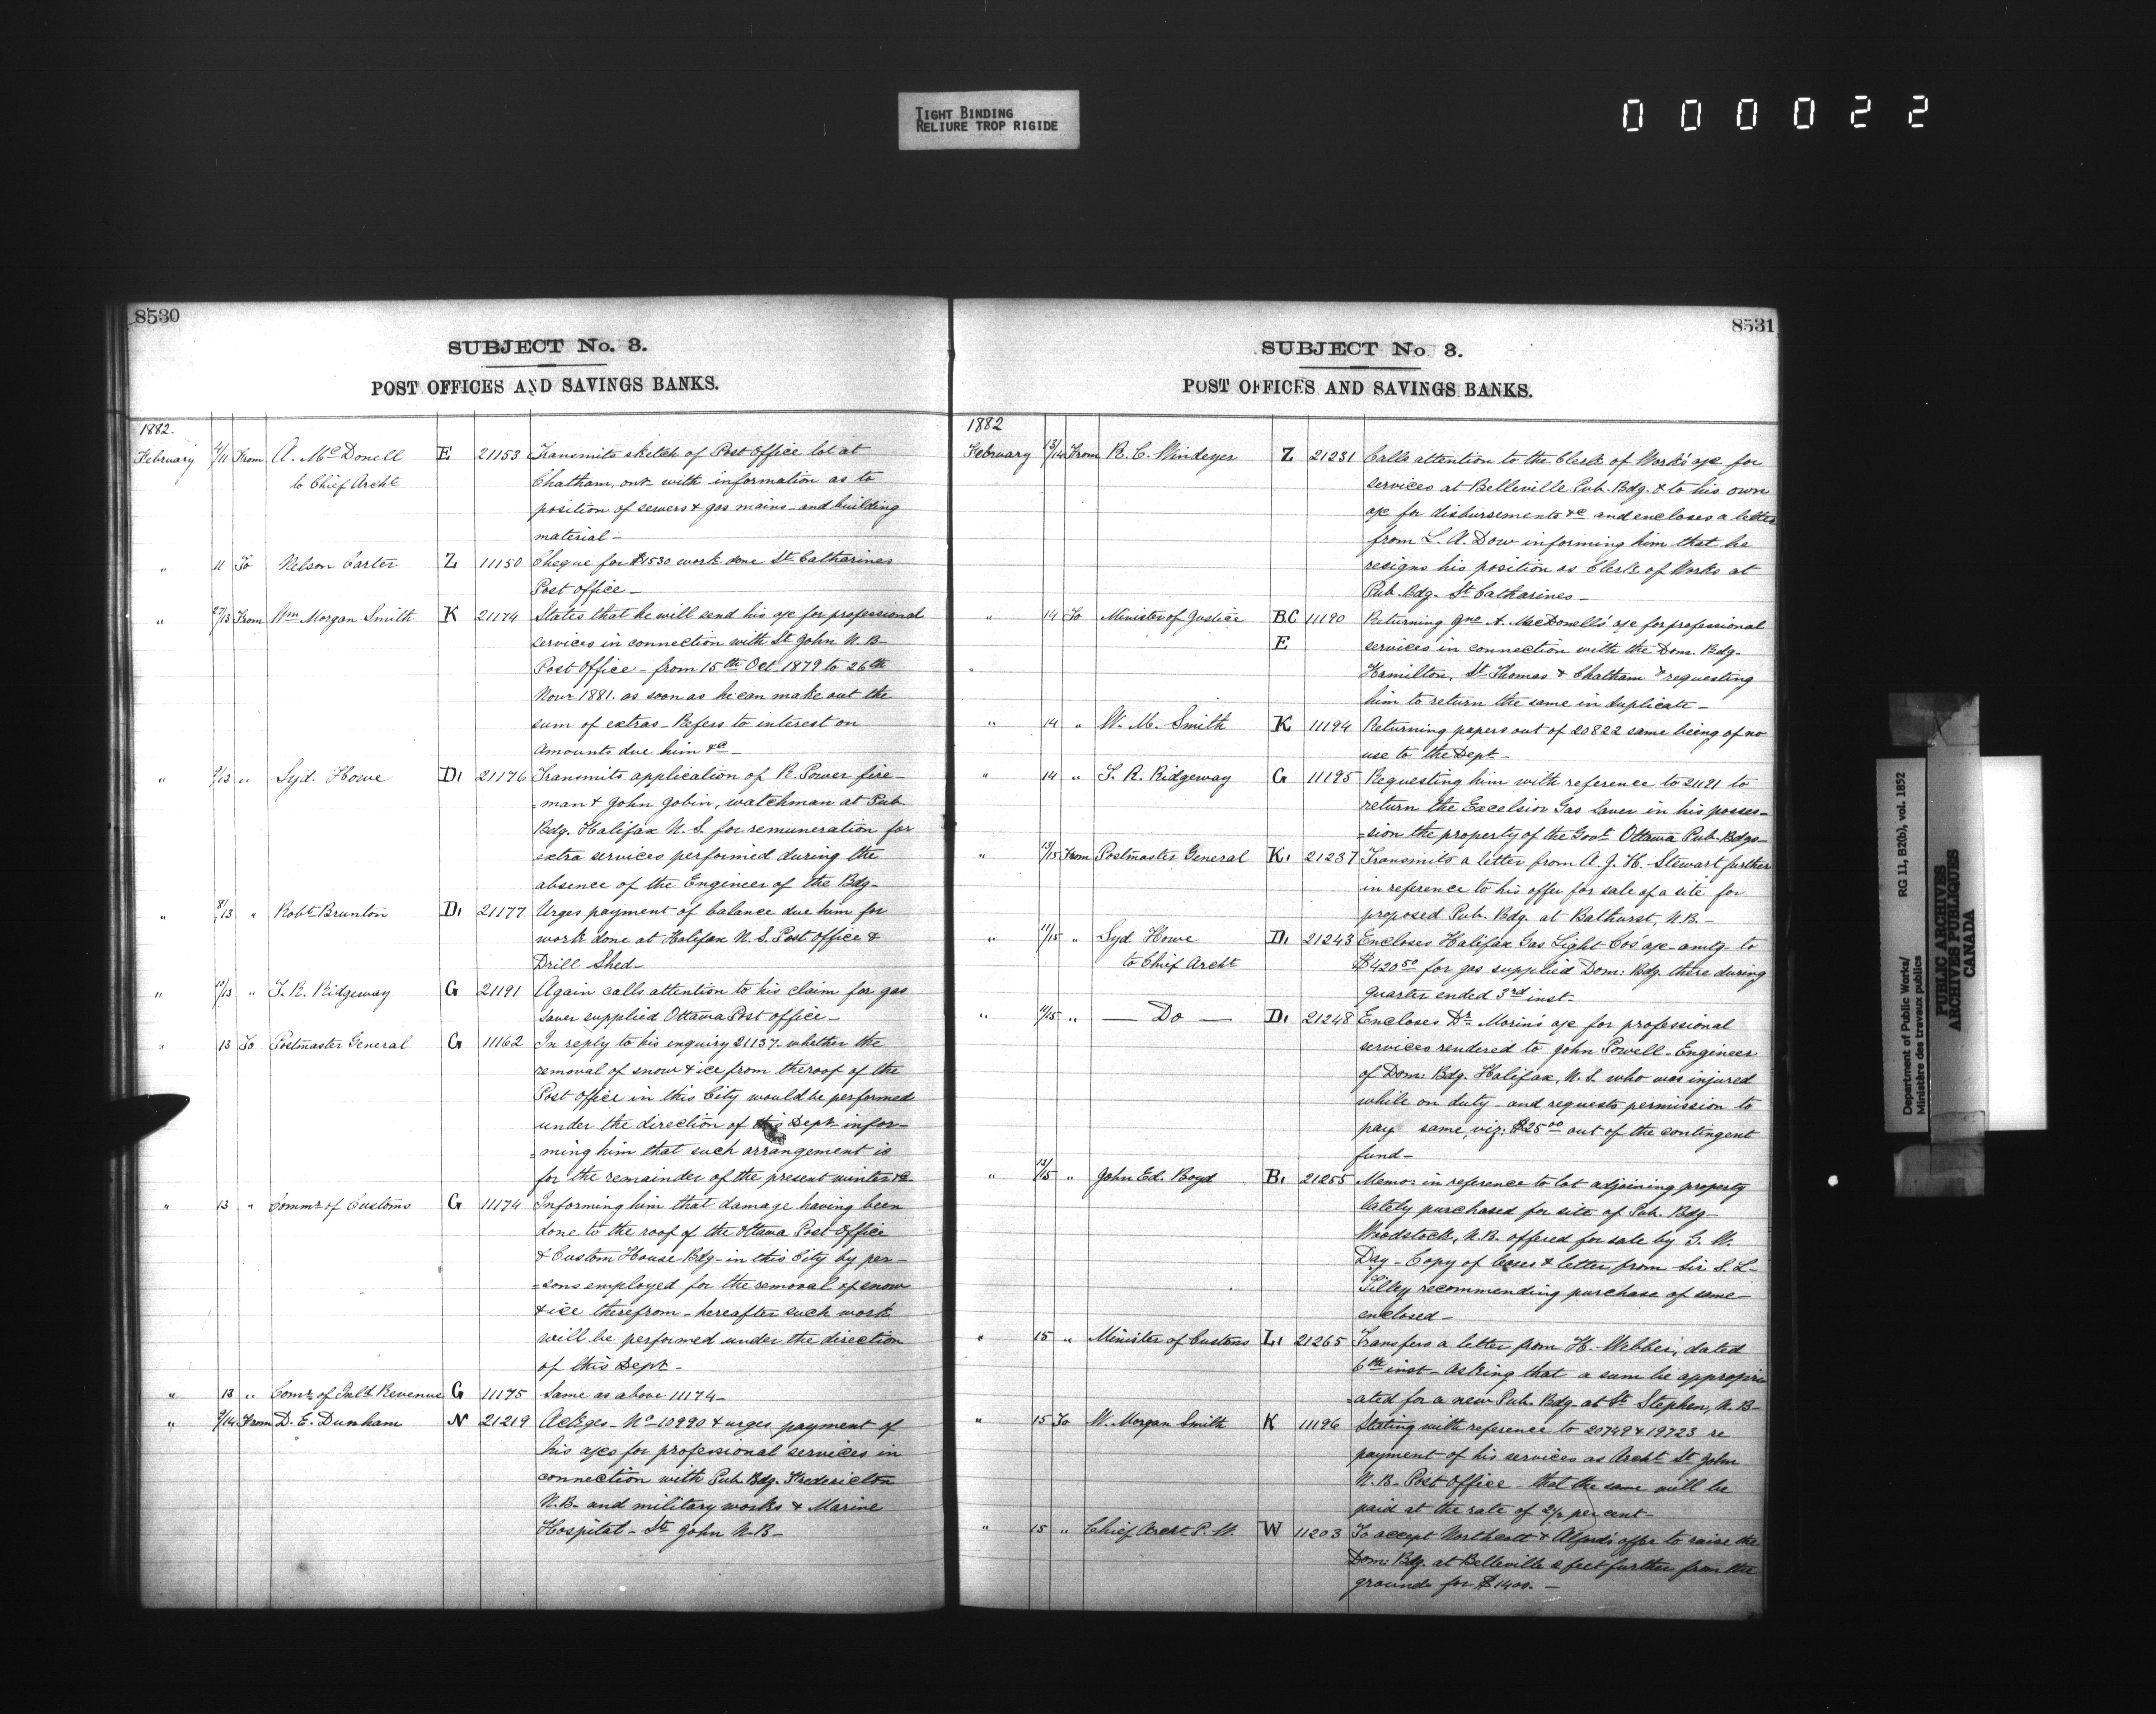 TIGHT BINDING
RELIURE TROP RIGIDE
000022
8530
SUBJECT No. 3.
POST OFFICES AND SAVINGS BANKS.
1882.
February 4/11 From A. McDonell E 21153 Transmits sketch of Post Office lot at
to Chief Archt Chatham, ont. with information as to
position of sewers & gas mains - and building
material -
" 11 To Nelson Carter Z 11150 Cheque for $1530 work done St Catharines
Post office -
" 27/13 From Wm Morgan Smith K 21174 States that he will send his a/c for professional
services in connection with St John N.B.
Post Office - from 15th Oct. 1879 to 26th
Novr 1881. as soon as he can make out the
sum of extras - Refers to interest on
amounts due him &c -
" /13 " Syd. Howe D1 21176 Transmits application of R. Power fire-
=man & John Jobin, watchman at Pub.
Bdg. Halifax N.S. for remuneration for
extra services performed during the
absence of the Engineer of the Bdg -
" 8/13 " Robt Brunton D1 21177 Urges payment of balance due him for
work done at Halifax N.S. Post office &
Drill Shed -
" /13 " T. R. Ridgeway G 21191 Again calls attention to his claim for gas
saver supplied Ottawa Post office -
" 13 To Postmaster General G 11162 In reply to his enquiry 21137. whether the
removal of snow & ice from the roof of the
Post office in this City would be performed
under the direction of this Dept infor-
=ming him that such arrangement is
for the remainder of the present winter &c -
" 13 " Commr of Customs G 11174 Informing him that damage having been
done to the roof of the Ottawa Post Office
& Custom House Bdg - in this City by per-
=sons employed for the removal of snow
& ice therefrom - hereafter such work
will be performed under the direction
of this Dept -
" 13 " Comr of Inld Revenue G 11175 Same as above 11174 -
" 9/14 From D. E. Dunham N 21219 Ackges - No 10990 & urges payment of
his a/cs for professional services in
connection with Pub. Bdg. Fredericton
N.B. and military works & Marine
Hospital - St John N.B -
8531
SUBJECT No 3.
POST OFFICES AND SAVINGS BANKS.
1882
February 13/14 From R. C. Windeyer Z 21231 Calls attention to the Clerk of Works' a/c for
services at Belleville Pub. Bdg. & to his own
a/c for disbursements &c and encloses a letter
from L. A. Dow informing him that he
resigns his position as Clerk of Works at
Pub. Bdg. St Catharines -
" 14 To Minister of Justice B.C 11190 Returning Jno A. MacDonell's a/c for professional
E services in connection with the Dom. Bdg.
Hamilton, St Thomas & Chatham & requesting
him to return the same in duplicate -
" 14 " W. M. Smith K 11194 Returning papers out of 20822 same being of no
use to the Dept -
" 14 " T. R. Ridgeway G 11195 Requesting him with reference to 21191 to
return the Excelsior Gas Saver in his posses-
=sion the property of the Govt Ottawa Pub. Bdgs -
" 13/15 From Postmaster General K1 21237 Transmits a letter from A. J. H. Stewart further
in reference to his offer for sale of a site for
proposed Pub. Bdg. at Bathurst, N.B. -
" 11/15 " Syd Howe D1 21243 Encloses Halifax Gas Light Co's a/c - amtg to
to Chief Archt $420.50 for gas supplied Dom: Bdg. there during
quarter ended 3rd inst -
" 11/15 " Do D1 21248 Encloses Dr Morin's a/c for professional
services rendered to John Powell - Engineer
of Dom: Bdg. Halifax, N.S. who was injured
while on duty - and requests permission to
pay same, viz: $25.00 out of the contingent
fund -
" 13/15 " John Ed. Boyd B1 21255 Memo: in reference to lot adjoining property
lately purchased for site of Pub. Bdg -
Woodstock, N.B. offered for sale by G. W.
Day - Copy of lease & letter from Sir S. L.
Tilley recommending purchase of same
enclosed -
" 15 " Minister of Customs L1 21265 Transfers a letter from H. Webber, dated
6th inst - asking that a sum be appropri
=ated for a new Pub. Bdg. at St Stephen, N.B -
" 15 To W. Morgan Smith K 11196 Stating with reference to 20749 & 19723 re
payment of his services as Archt St John
N.B. Post Office - that the same will be
paid at the rate of 2½ per cent -
" 15 " Chief Archt P. W. W 11203 To accept Northcott & Alford's offer to raise the
Dom: Bdg. at Belleville 2 feet further from the
ground for $1400. -
Department of Public Works/ RG 11, B2(b), vol. 1852
Ministère des travaux publics
PUBLIC ARCHIVES
ARCHIVES PUBLIQUES
CANADA